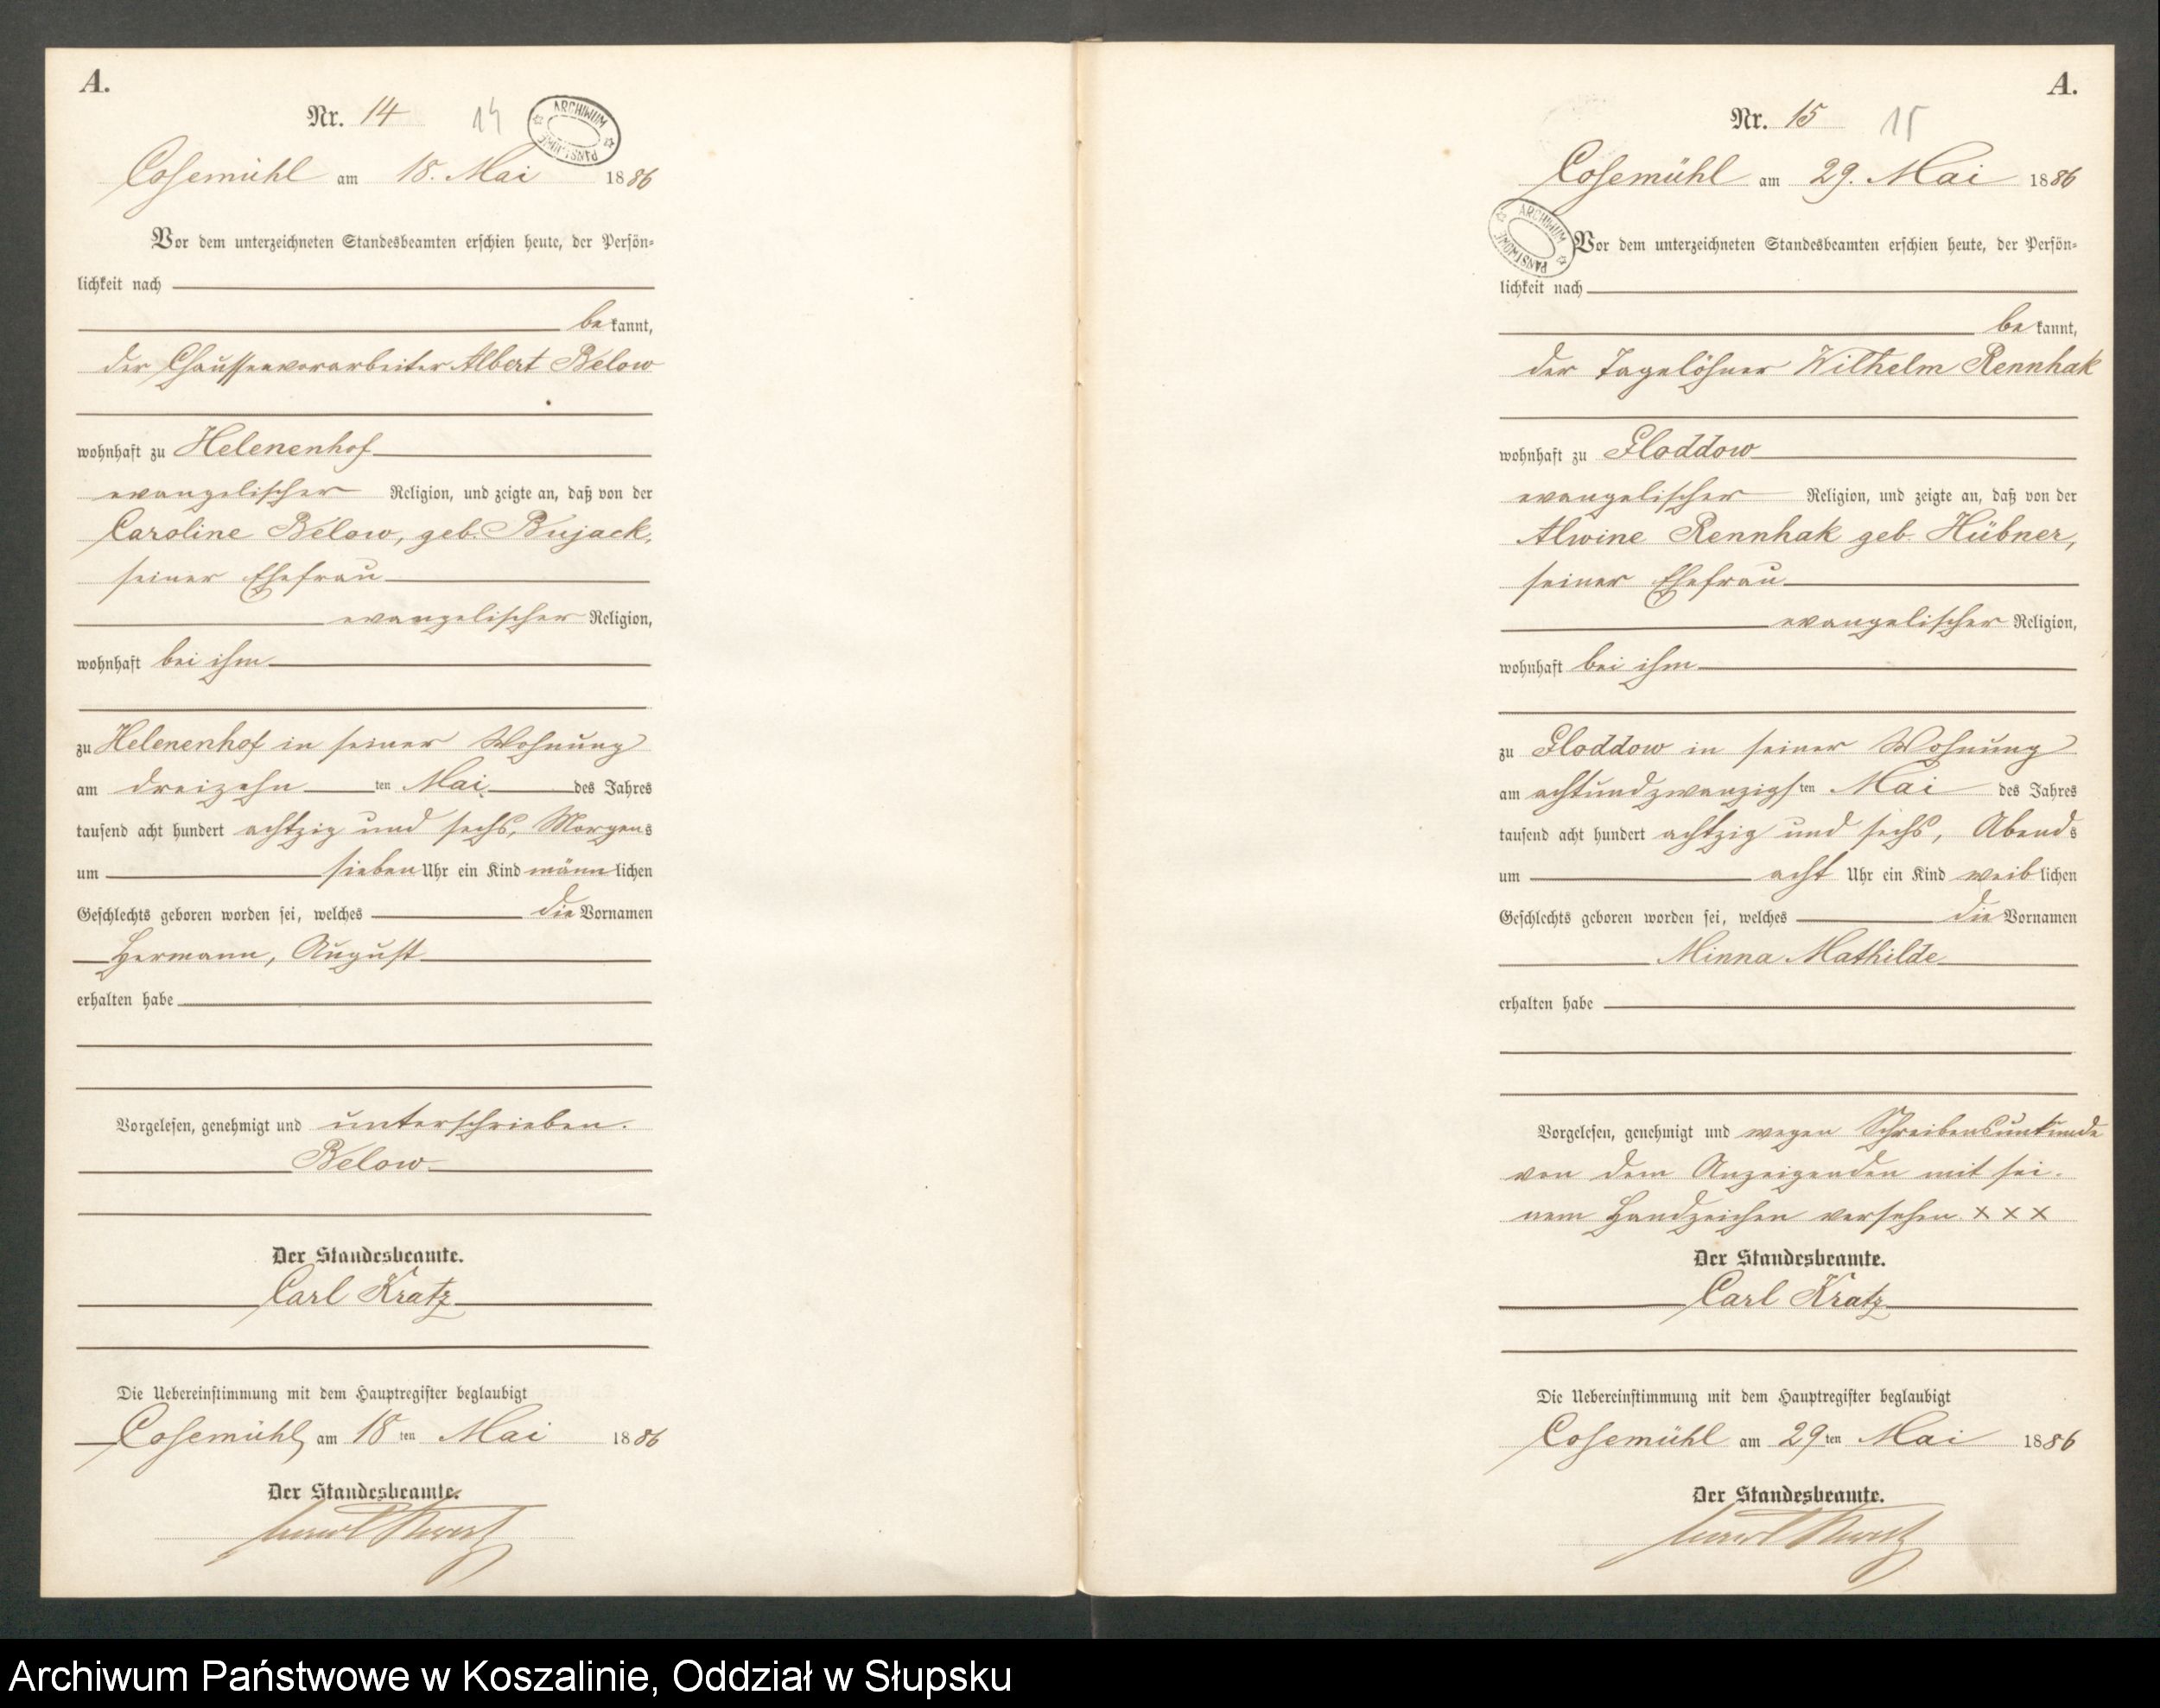 A.
Nr. 14
14
ARCHIWUM PAŃSTWOWE
Cosemühl am 18. Mai 1886
Vor dem unterzeichneten Standesbeamten erschien heute, der Persön-
lichkeit nach
bekannt,
der Chausseevorarbeiter Albert Below
wohnhaft zu Helenenhof
evangelischer Religion, und zeigte an, daß von der
Caroline Below, geb. Bujack,
seiner Ehefrau
evangelischer Religion,
wohnhaft bei ihm
zu Helenenhof in seiner Wohnung
am dreizehnten Mai des Jahres
tausend acht hundert achtzig und sechs, Morgens
um sieben Uhr ein Kind männlichen
Geschlechts geboren worden sei, welches die Vornamen
Hermann, August
erhalten habe
Vorgelesen, genehmigt und unterschrieben.
Below
Der Standesbeamte.
Carl Kratz
Die Uebereinstimmung mit dem Hauptregister beglaubigt
Cosemühl, am 18ten Mai 1886
Der Standesbeamte.
A.
Nr. 15
15
Cosemühl am 29. Mai 1886
ARCHIWUM PAŃSTWOWE
Vor dem unterzeichneten Standesbeamten erschien heute, der Persön-
lichkeit nach
bekannt,
der Tagelöhner Wilhelm Rennhak
wohnhaft zu Gloddow
evangelischer Religion, und zeigte an, daß von der
Alwine Rennhak geb. Hübner,
seiner Ehefrau
evangelischer Religion,
wohnhaft bei ihm
zu Gloddow in seiner Wohnung
am achtundzwanzigsten Mai des Jahres
tausend acht hundert achtzig und sechs, Abends
um acht Uhr ein Kind weiblichen
Geschlechts geboren worden sei, welches die Vornamen
Minna Mathilde
erhalten habe
Vorgelesen, genehmigt und wegen Schreibensunkunde
von dem Anzeigenden mit sei-
nem Handzeichen versehen. x x x
Der Standesbeamte.
Carl Kratz
Die Uebereinstimmung mit dem Hauptregister beglaubigt
Cosemühl am 29ten Mai 1886
Der Standesbeamte.
Archiwum Państwowe w Koszalinie, Oddział w Słupsku